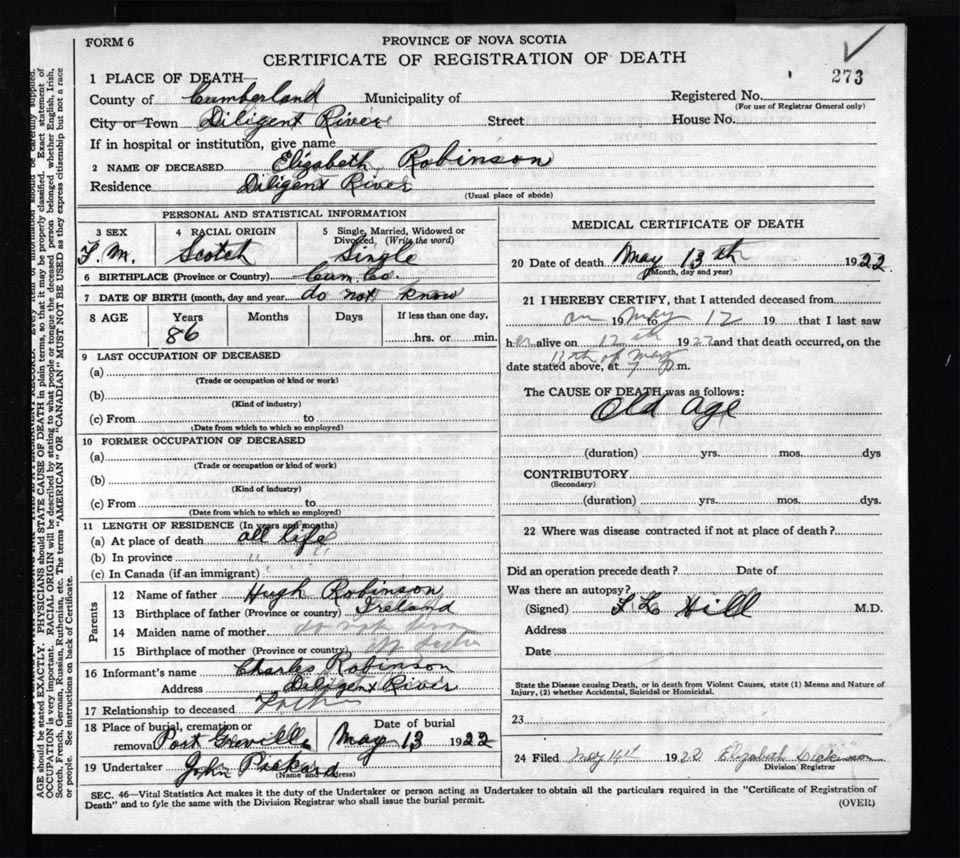 FORM 6
PROVINCE OF NOVA SCOTIA
CERTIFICATE OF REGISTRATION OF DEATH
273
1 PLACE OF DEATH—
County of Cumberland Municipality of
Registered No.
(For use of Registrar General only)
City or Town Diligent River Street House No.
If in hospital or institution, give name
2 NAME OF DECEASED Elizabeth Robinson
Residence Diligent River
(Usual place of abode)
PERSONAL AND STATISTICAL INFORMATION
3 SEX 4 RACIAL ORIGIN 5 Single, Married, Widowed or Divorced, (Write the word)
F.M. Scotch Single
6 BIRTHPLACE (Province or Country) Cum. Co.
7 DATE OF BIRTH (month, day and year) do not know
8 AGE Years Months Days If less than one day,
86 hrs. or min.
9 LAST OCCUPATION OF DECEASED
(a)
(Trade or occupation or kind or work)
(b)
(Kind of industry)
(c) From to
(Date from which to which so employed)
10 FORMER OCCUPATION OF DECEASED
(a)
(Trade or occupation or kind of work)
(b)
(Kind of industry)
(c) From to
(Date from which to which so employed)
11 LENGTH OF RESIDENCE (In years and months)
(a) At place of death all life
(b) In province " "
(c) In Canada (if an immigrant)
Parents
12 Name of father Hugh Robinson
13 Birthplace of father (Province or country) Ireland
14 Maiden name of mother do not know
15 Birthplace of mother (Province or country)
16 Informant's name Charles Robinson
Address Diligent River
17 Relationship to deceased
18 Place of burial, cremation or removal Port Greville
Date of burial
May 13 1922
19 Undertaker John
(Name and Address)
MEDICAL CERTIFICATE OF DEATH
20 Date of death May 13th 1922
(Month, day and year)
21 I HEREBY CERTIFY, that I attended deceased from
on 19 to May 12 19 that I last saw
her alive on 12th 1922 and that death occurred, on the
of May
date stated above, at 7 p m.
The CAUSE OF DEATH was as follows:
Old Age
(duration) yrs. mos. dys
CONTRIBUTORY
(Secondary)
(duration) yrs. mos. dys.
22 Where was disease contracted if not at place of death?
Did an operation precede death? Date of
Was there an autopsy?
(Signed) Hill M.D.
Address
Date
State the Disease causing Death, or in death from Violent Causes, state (1) Means and Nature of
Injury, (2) whether Accidental, Suicidal or Homicidal.
23
24 Filed May 14th 1922 Elizabeth Dickinson
Division Registrar
SEC. 46—Vital Statistics Act makes it the duty of the Undertaker or person acting as Undertaker to obtain all the particulars required in the "Certificate of Registration of
Death" and to fyle the same with the Division Registrar who shall issue the burial permit.
(OVER)
AGE should be stated EXACTLY. PHYSICIANS should STATE CAUSE OF DEATH in plain terms, so that it may be properly classified. Exact statement of
OCCUPATION is very important. RACIAL ORIGIN will be described by stating to what people or tongue the deceased person belonged whether English, Irish,
Scotch, French, German, Russian, Ruthenian, etc. The terms "AMERICAN" OR "CANADIAN" MUST NOT BE USED as they express citizenship but not a race
or people. See instructions on back of Certificate.